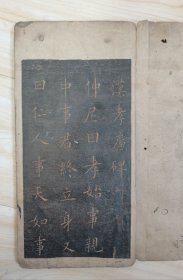 漢孝廉碑
仲尼曰孝始事親
中事君終立身又
曰仁人事天如事